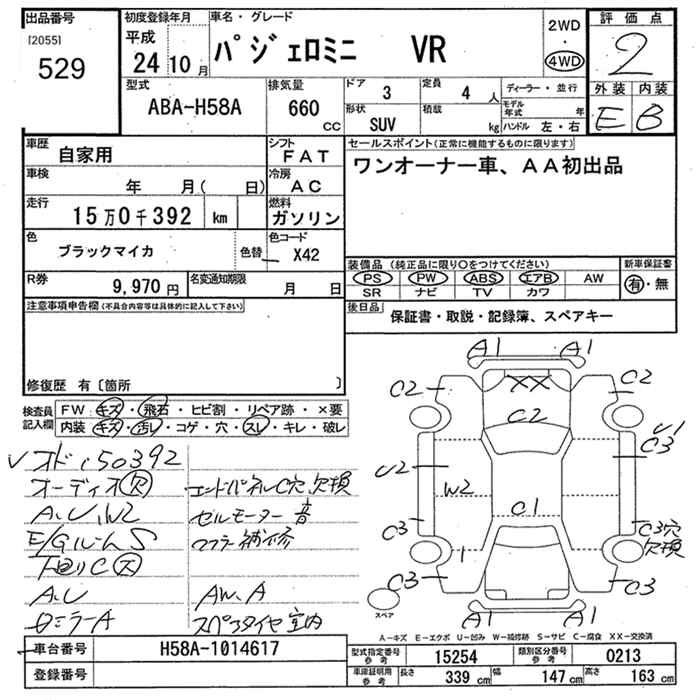 出品番号
[2055]
529
初度登録年月
平成
24 10 月
車名・グレード
パジェロミニ VR
2WD
・
4WD
評価点
2
外装 内装
E B
型式
ABA-H58A
排気量
660
CC
ドア 3
形状
SUV
定員 4 人
積載 kg
ディーラー・並行
モデル年式 年
ハンドル 左・右
車歴
自家用
シフト
FAT
車検
年 月( 日)
冷房
AC
走行
15万0千392 km
燃料
ガソリン
色
ブラックマイカ
色替
色コード
X42
R券
9,970 円
名変通知期限
月 日
セールスポイント(正常に機能するものに限ります)
ワンオーナー車、AA初出品
装備品 (純正品に限り○をつけてください)
PS PW ABS エアB AW
SR ナビ TV カワ
新車保証書
有・無
後日品
保証書・取説・記録簿、スペアキー
注意事項申告欄(不具合内容等は具体的に記入して下さい)
修復歴 有〔箇所 〕
検査員
記入欄
FW:キズ・飛石・ヒビ割・リペア跡・×要
内装:キズ・汚レ・コゲ・穴・スレ・キレ・破レ
オド150392
オーディオ欠 エンドパネルC穴、欠損
A.U.W2 セルモーター音
E/GルームS マフラー補修
下回りC
A.U AW.A
ロミラーA スペアタイヤ室内
A1 A1
C2 XX C2
C2
U1
C3
U2 W2
C1
C3 1 C3穴
欠損
C3 C3
A1 A1
スペア
A-キズ E-エクボ U-凹み W-補修跡 S-サビ C-腐食 XX-交換済
車台番号
H58A-1014617
登録番号
型式指定番号
参考
15254
類別区分番号
参考
0213
車庫証明用
参考
長さ 339 cm 幅 147 cm 高さ 163 cm